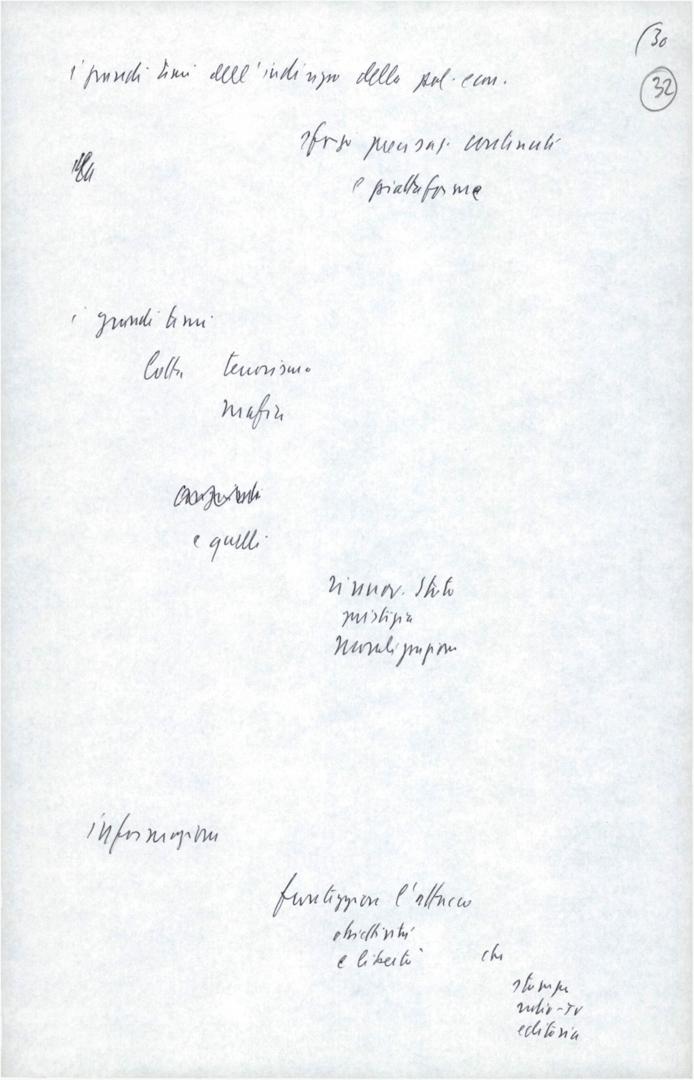 (30
32
i grandi temi dell'indirizzo della pol. econ.
sforzo precisaz. contenuti
e piattaforme
i grandi temi
lotta terrorismo
mafia
e quelli
rinnov. Stato
giustizia
moralizzazione
informazione
fronteggiare l'attacco
obiettività
e libertà che
stampa
radio-TV
editoria